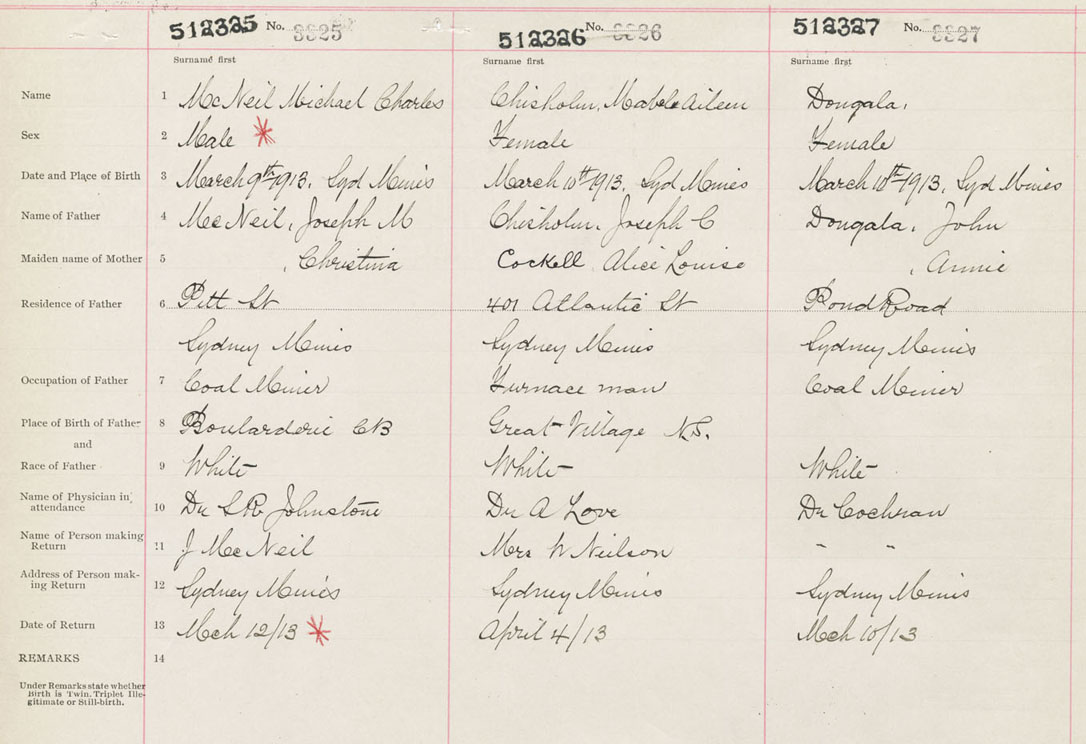 512325 No. 3325 512326 No. 3326 512327 No. 3327
Surname first Surname first Surname first
Name 1 McNeil Michael Charles Chisholm, Mabel Aileen Dongala,
Sex 2 Male * Female Female
Date and Place of Birth 3 March 9th 1913, Syd Mines March 10th 1913, Syd Mines March 10th 1913, Syd Mines
Name of Father 4 McNeil, Joseph M Chisholm, Joseph C Dongala, John
Maiden name of Mother 5 , Christina Cockell Alice Louise , Annie
Residence of Father 6 Pitt St 401 Atlantic St Pond Road
Sydney Mines Sydney Mines Sydney Mines
Occupation of Father 7 Coal Miner Furnace man Coal Miner
Place of Birth of Father 8 Boularderie CB Great Village N.S.
and
Race of Father 9 White White White
Name of Physician in
attendance 10 Dr L R Johnstone Dr A Love Dr Cochran
Name of Person making
Return 11 J McNeil Mrs W Neilson " "
Address of Person mak-
ing Return 12 Sydney Mines Sydney Mines Sydney Mines
Date of Return 13 Mch 12/13 * April 4/13 Mch 10/13
REMARKS 14
Under Remarks state whether
Birth is Twin. Triplet Ille-
gitimate or Still-birth.